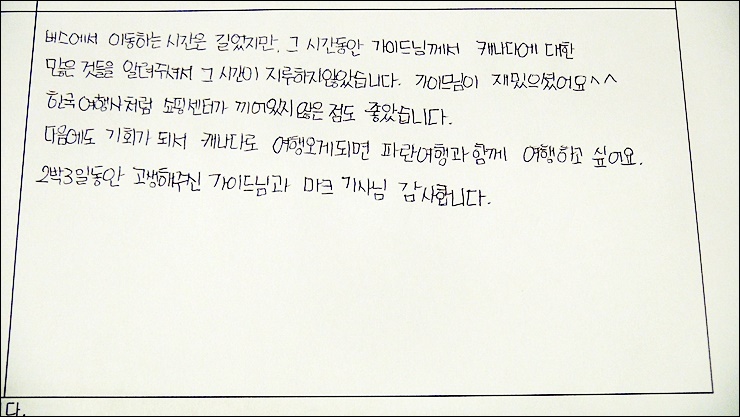 버스에서 이동하는 시간은 길었지만, 그 시간동안 가이드님께서 캐나다에 대한
많은 것들을 알려주셔서 그 시간이 지루하지않았습니다. 가이드님이 재밌으셨어요^^
한국여행사처럼 쇼핑센터가 끼어있지 않은 점도 좋았습니다.
다음에도 기회가 되서 캐나다로 여행오게되면 파란여행과 함께 여행하고 싶어요.
2박3일동안 고생해주신 가이드님과 마크 기사님 감사합니다.
다.